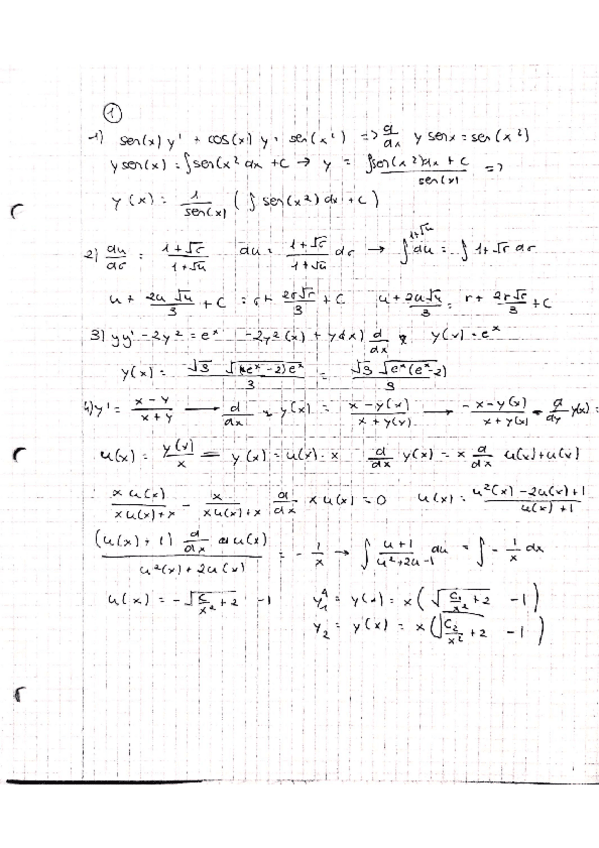 ①
1) sen(x) y' + cos(x) y = sen(x²) => d/dx y senx = sen(x²)
y sen(x) = ∫sen(x² dx + C → y = ∫sen(x²)dx + C / sen(x) =>
y(x) = 1/sen(x) ( ∫ sen(x²) dx + C )
2) du/dr = 1+√r / 1+√u du = 1+√r / 1+√u dr → ∫ 1+√u du = ∫ 1+√r dr
u + 2u√u/3 + C = r + 2r√r/3 + C u + 2u√u/3 = r + 2r√r/3 + C
3) yy' - 2y² = eˣ -2y²(x) + y(x) d/dx y(x) = eˣ
y(x) = √3 √(eˣ-2)eˣ / 3 = √3 √eˣ(eˣ-2) / 3
4) y' = x-y / x+y → d/dx y(x) = x-y(x) / x+y(x) → -x-y(x) / x+y(x) = d/dy y(x) =
u(x) = y(x)/x = y(x) = u(x) · x d/dx y(x) = x d/dx u(x)+u(x)
x u(x) / xu(x)+x - x / xu(x)+x d/dx x u(x) = 0 u(x) = u²(x) - 2u(x)+1 / u(x)+1
(u(x)+1) d/dx u(x) / u²(x)+2u(x) = - 1/x → ∫ u+1 / u²+2u-1 du = ∫ - 1/x dx
u(x) = -√C/x² + 2 -1 y₁ = y(x) = x ( √C₁/x² + 2 -1 )
y₂ = y(x) = x ( √C₂/x² + 2 -1 )